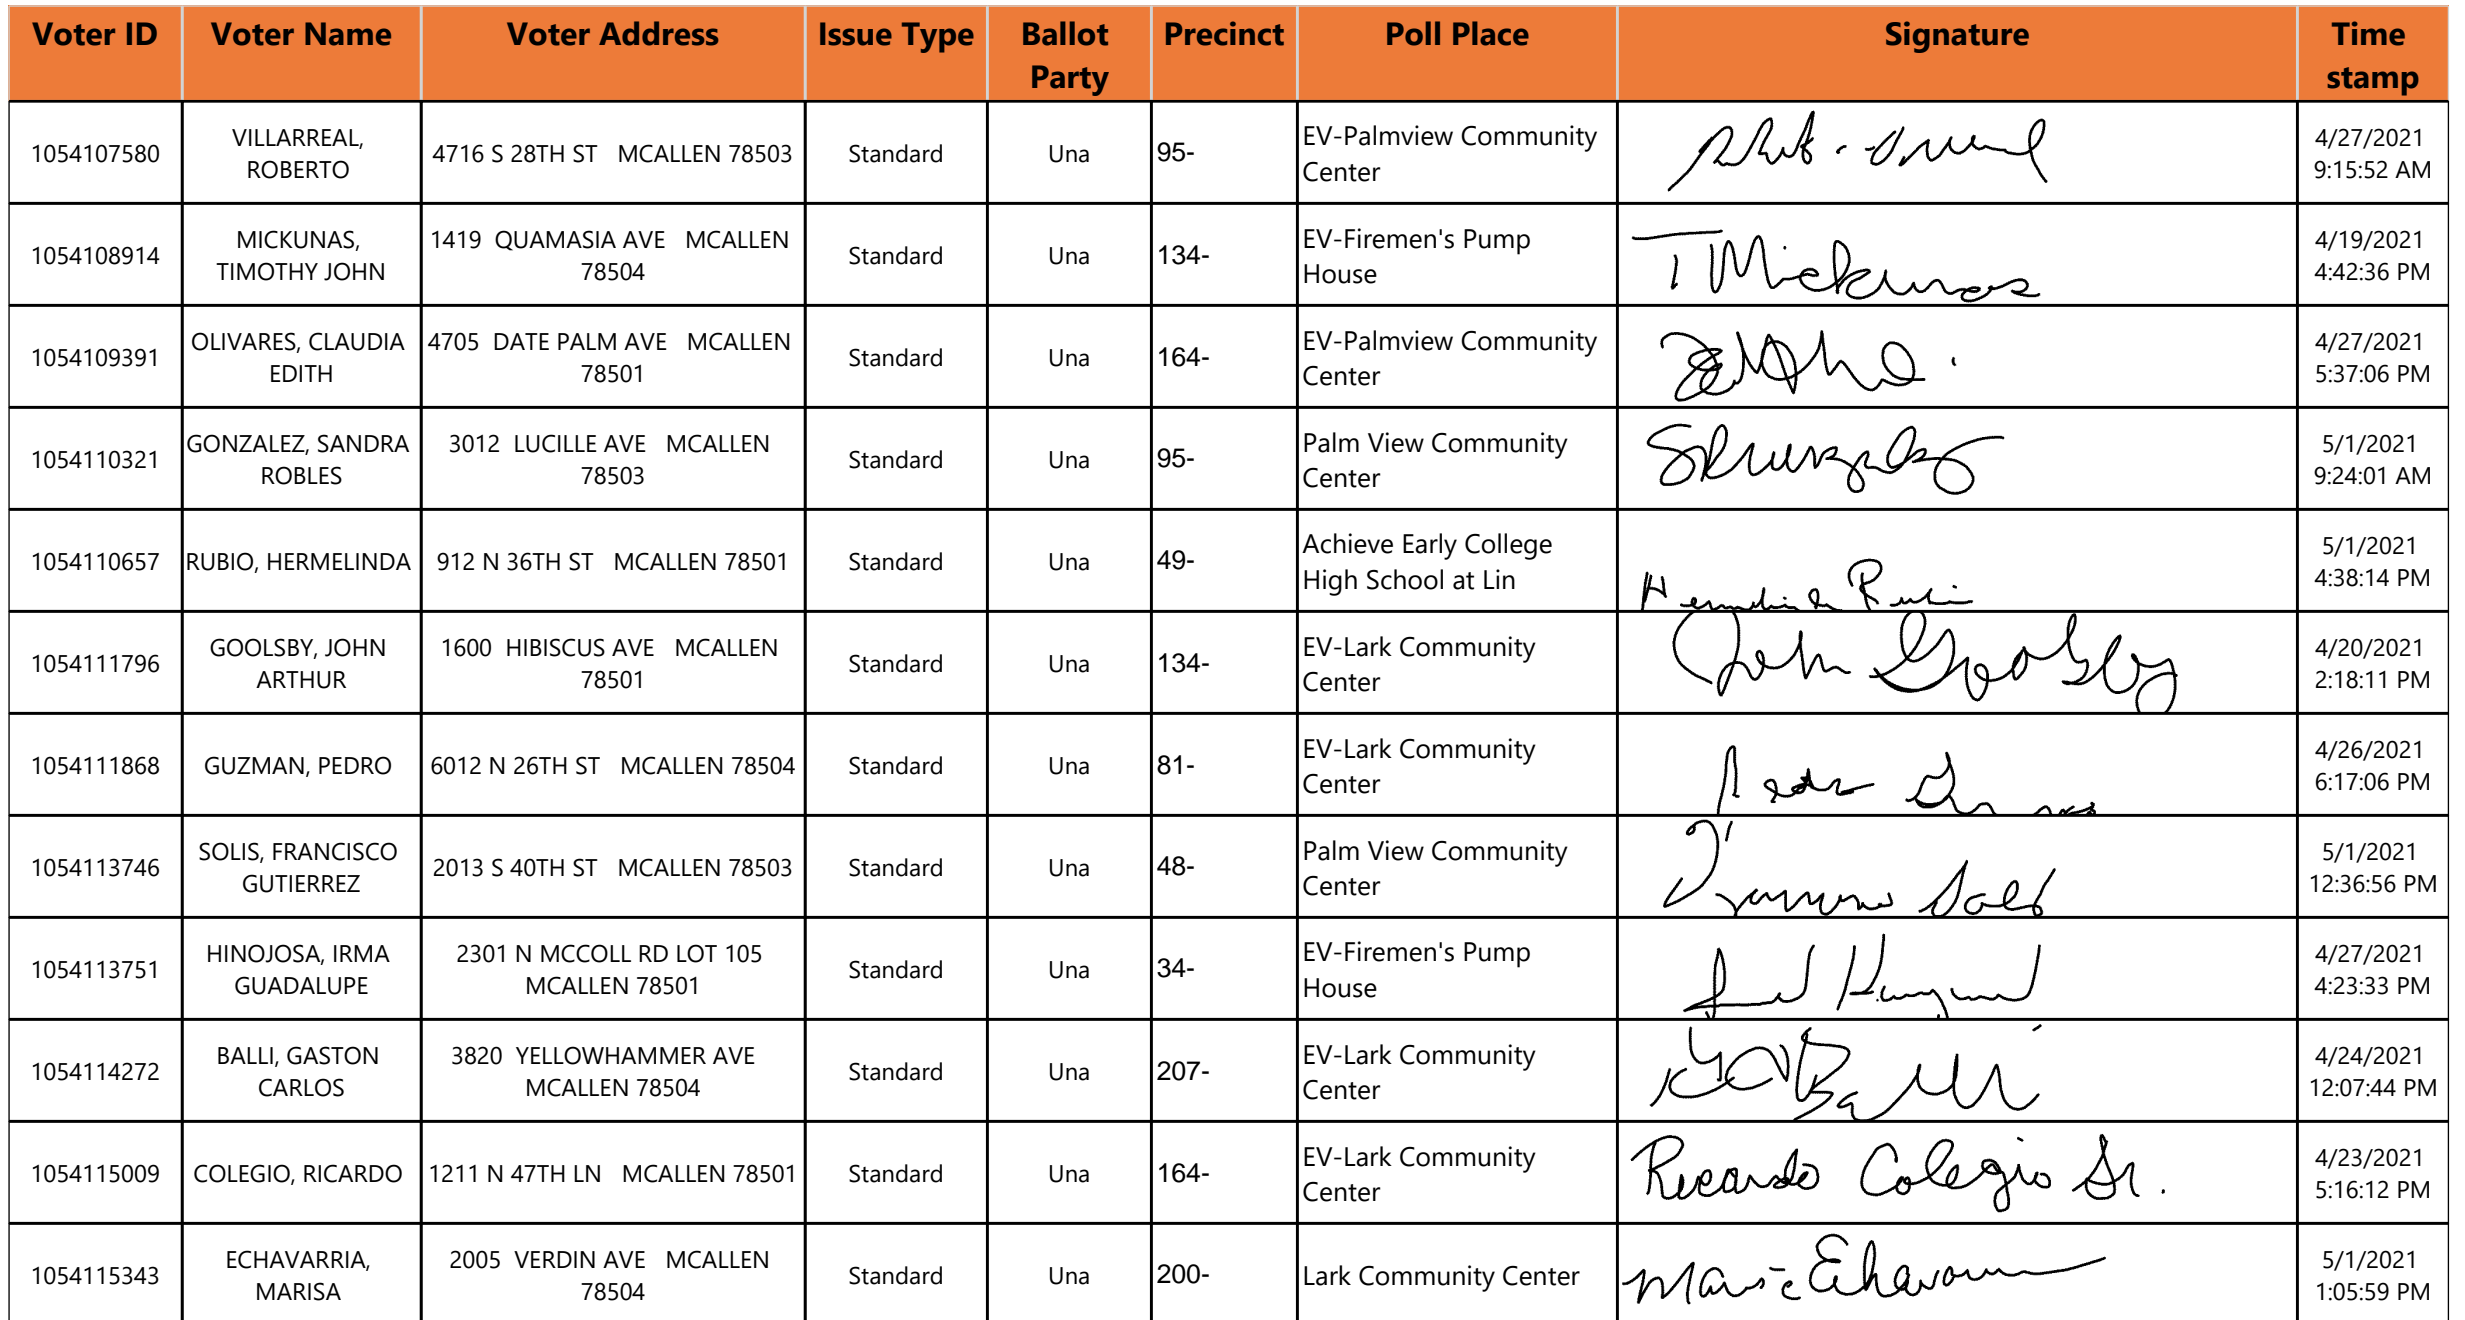 Voter ID Voter Name Voter Address Issue Type Ballot Party Precinct Poll Place Signature Time stamp
1054107580 VILLARREAL, ROBERTO 4716 S 28TH ST MCALLEN 78503 Standard Una 95- EV-Palmview Community Center 4/27/2021 9:15:52 AM
1054108914 MICKUNAS, TIMOTHY JOHN 1419 QUAMASIA AVE MCALLEN 78504 Standard Una 134- EV-Firemen's Pump House T Mickunas 4/19/2021 4:42:36 PM
1054109391 OLIVARES, CLAUDIA EDITH 4705 DATE PALM AVE MCALLEN 78501 Standard Una 164- EV-Palmview Community Center 4/27/2021 5:37:06 PM
1054110321 GONZALEZ, SANDRA ROBLES 3012 LUCILLE AVE MCALLEN 78503 Standard Una 95- Palm View Community Center 5/1/2021 9:24:01 AM
1054110657 RUBIO, HERMELINDA 912 N 36TH ST MCALLEN 78501 Standard Una 49- Achieve Early College High School at Lin Hermelinda Rubio 5/1/2021 4:38:14 PM
1054111796 GOOLSBY, JOHN ARTHUR 1600 HIBISCUS AVE MCALLEN 78501 Standard Una 134- EV-Lark Community Center John Goolsby 4/20/2021 2:18:11 PM
1054111868 GUZMAN, PEDRO 6012 N 26TH ST MCALLEN 78504 Standard Una 81- EV-Lark Community Center Pedro 4/26/2021 6:17:06 PM
1054113746 SOLIS, FRANCISCO GUTIERREZ 2013 S 40TH ST MCALLEN 78503 Standard Una 48- Palm View Community Center 5/1/2021 12:36:56 PM
1054113751 HINOJOSA, IRMA GUADALUPE 2301 N MCCOLL RD LOT 105 MCALLEN 78501 Standard Una 34- EV-Firemen's Pump House 4/27/2021 4:23:33 PM
1054114272 BALLI, GASTON CARLOS 3820 YELLOWHAMMER AVE MCALLEN 78504 Standard Una 207- EV-Lark Community Center Balli 4/24/2021 12:07:44 PM
1054115009 COLEGIO, RICARDO 1211 N 47TH LN MCALLEN 78501 Standard Una 164- EV-Lark Community Center Ricardo Colegio Sr. 4/23/2021 5:16:12 PM
1054115343 ECHAVARRIA, MARISA 2005 VERDIN AVE MCALLEN 78504 Standard Una 200- Lark Community Center 5/1/2021 1:05:59 PM